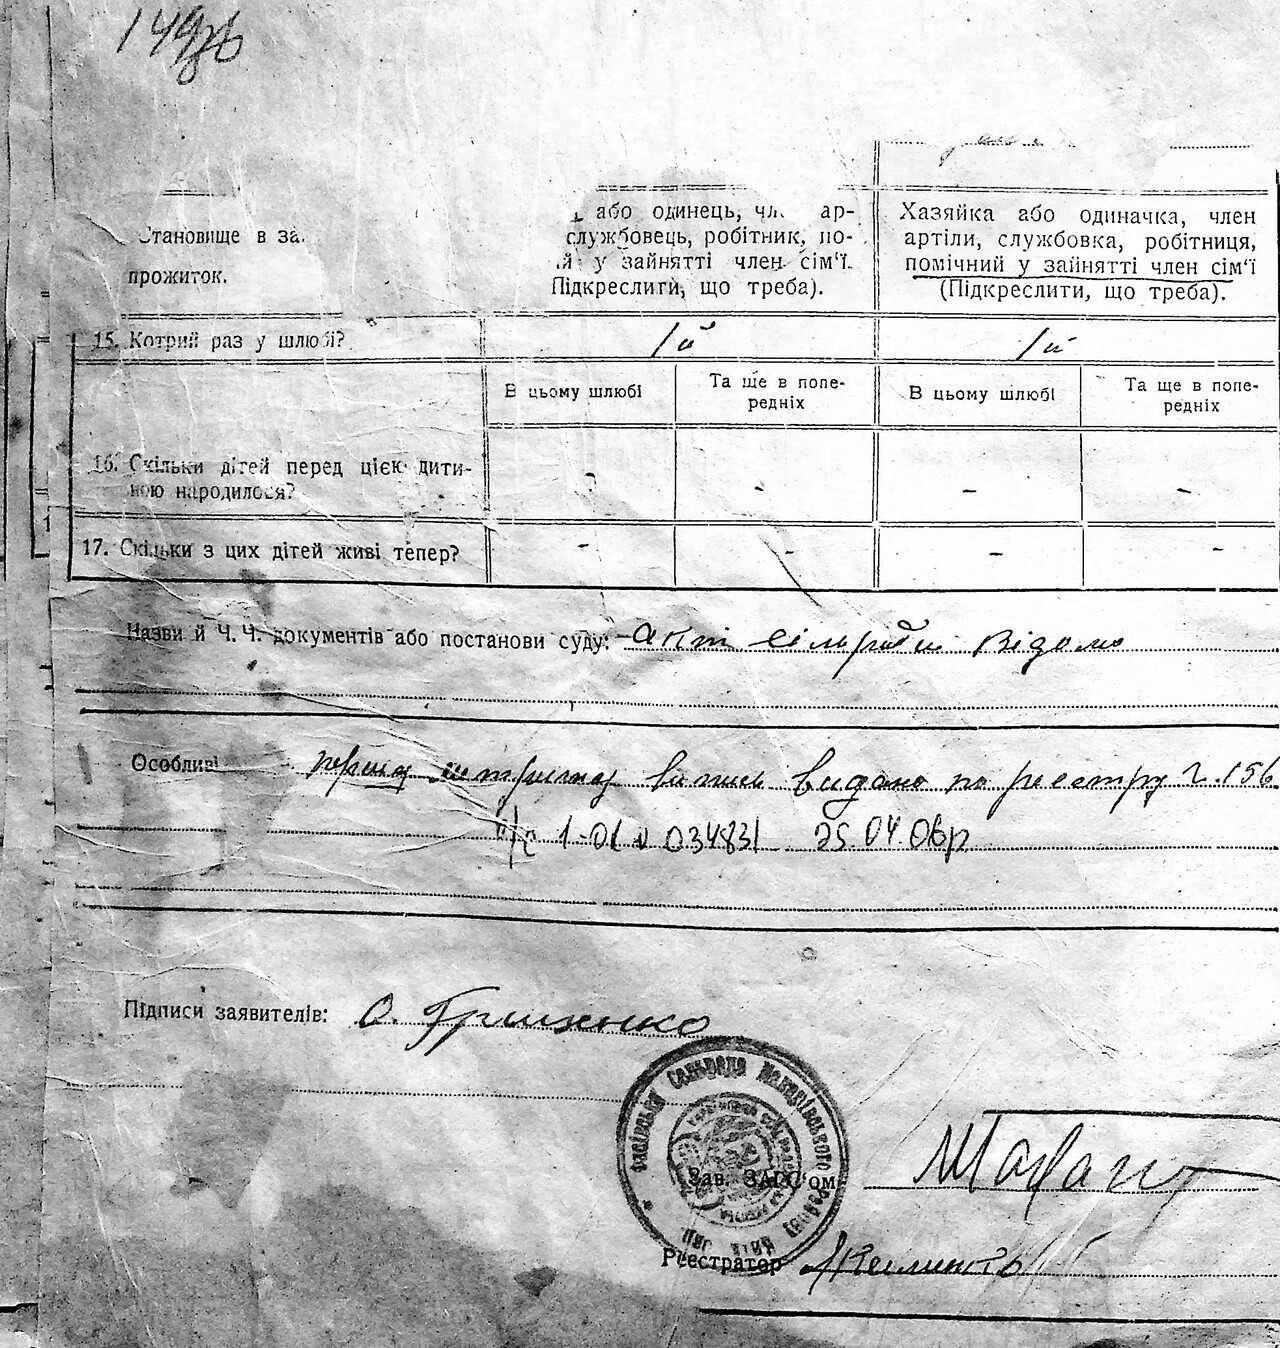 149зв
Становище в за
прожиток.
або одинець, чл. ар-
службовець, робітник, по-
й у зайнятті член сім'ї.
Підкреслити, що треба).
Хазяйка або одиначка, член
артілі, службовка, робітниця,
помічний у зайнятті член сім'ї
(Підкреслити, що треба).
15. Котрий раз у шлюбі?
1й
1й
В цьому шлюбі
Та ще в попе-
редніх
В цьому шлюбі
Та ще в попе-
редніх
16. Скільки дітей перед цією дити-
ною народилося?
-
-
-
-
17. Скільки з цих дітей живі тепер?
-
-
-
-
Назви й Ч. Ч. документів або постанови суду: акт сільради Відомо
Особливі перша метрична випись видано по реестру ч. 156
с 1-ОК 034831 25.04.06р
Підписи заявителів: О. Грищенко
Сельрада Макарівського Району
Зав. ЗАГС'ом
Реєстратор